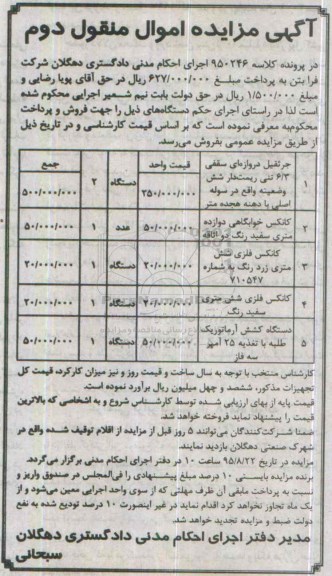 آگهی مزایده اموال منقول دوم
در پرونده کلاسه ۹۵۰۲۴۶ اجرای احکام مدنی دادگستری دهگلان شرکت
فرا بتن به پرداخت مبلغ ۶۲۷/۰۰۰/۰۰۰ ریال در حق آقای پویا رضایی و
مبلغ ۱/۵۰۰/۰۰۰ ریال در حق دولت بابت نیم عشر اجرایی محکوم شده
است لذا در راستای اجرای حکم دستگاه‌های ذیل را جهت فروش و پرداخت
محکوم‌به معرفی نموده است که بر اساس قیمت کارشناسی و در تاریخ ذیل
از طریق مزایده عمومی بفروش می‌رسد.
قیمت واحد جمع
۱ جرثقیل دروازه‌ای سقفی ۶/۳ تنی ریست‌لار شش وضعیته واقع در سوله اصلی با دهنه هجده متر ۲۵۰/۰۰۰/۰۰۰ دستگاه ۲ ۵۰۰/۰۰۰/۰۰۰
۲ کانکس خوابگاهی دوازده متری سفید رنگ دو اتاقه ۵۰/۰۰۰/۰۰۰ عدد ۱ ۵۰/۰۰۰/۰۰۰
۳ کانکس فلزی شش متری زرد رنگ به شماره ۷۱۰۵۴۷ ۲۰/۰۰۰/۰۰۰ دستگاه ۱ ۲۰/۰۰۰/۰۰۰
۴ کانکس فلزی شش متری سفید رنگ ۲۰/۰۰۰/۰۰۰ دستگاه ۱ ۲۰/۰۰۰/۰۰۰
۵ دستگاه کشش آرماتوریک طلبه با تغذیه ۲۵ آمپر سه فاز ۵۰/۰۰۰/۰۰۰ دستگاه ۱ ۵۰/۰۰۰/۰۰۰
کارشناس منتخب با توجه به سال ساخت و قیمت روز و نیز میزان کارکرد، قیمت کل
تجهیزات مذکور، ششصد و چهل میلیون ریال برآورد نموده است.
قیمت پایه از بهای ارزیابی شده توسط کارشناس شروع و به اشخاصی که بالاترین
قیمت را پیشنهاد نماید فروخته خواهد شد.
ضمنا شرکت‌کنندگان می‌توانند ۵ روز قبل از مزایده از اقلام توقیف شده واقع در
شهرک صنعتی دهگلان بازدید نمایند.
مزایده در تاریخ ۹۵/۸/۲۲ ساعت ۱۰ در دفتر اجرای احکام مدنی برگزار می‌گردد.
برنده مزایده بایستی ۱۰ درصد مبلغ پیشنهادی را فی‌المجلس در صندوق واریز و
نسبت به پرداخت مابقی آن ظرف مهلتی که از سوی واحد اجرایی معین می‌شود و از
یک ماه تجاوز نخواهد کرد اقدام نماید در غیر اینصورت ۱۰ درصد تودیع شده به نفع
دولت ضبط و مزایده تجدید خواهد شد.
مدیر دفتر اجرای احکام مدنی دادگستری دهگلان
سبحانی